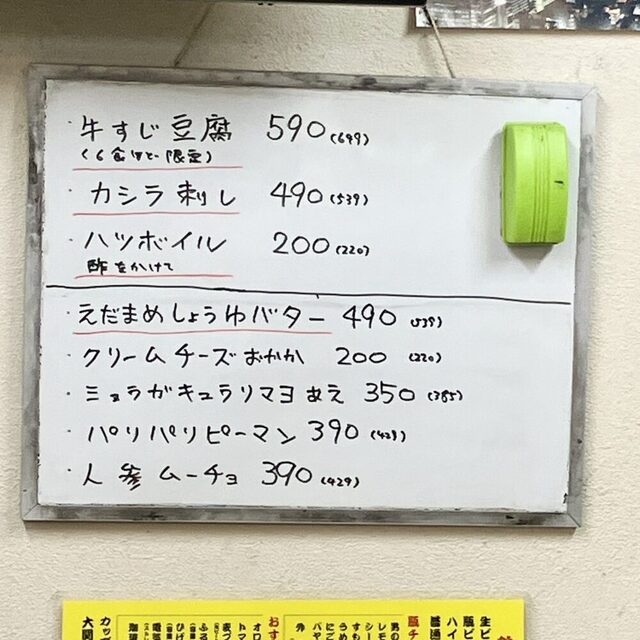 ・牛すじ豆腐 590 (649)
(6食ほど限定)
・カシラ刺し 490 (539)
・ハツボイル 200 (220)
酢をかけて
・えだまめしょうゆバター 490 (539)
・クリームチーズおかか 200 (220)
・ミョウガキュウリマヨあえ 350 (385)
・パリパリピーマン 390 (429)
・人参ムーチョ 390 (429)